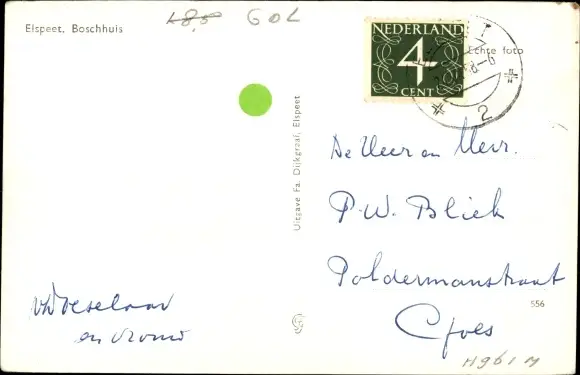 Elspeet, Boschhuis
48,5 GOL
NEDERLAND
4
CENT
Echte foto
2
Uitgave Fa. Dijkgraaf, Elspeet
De Heer en Mevr.
P.W. Bliek
Poldermanstraat
Goes
556
en vrouw